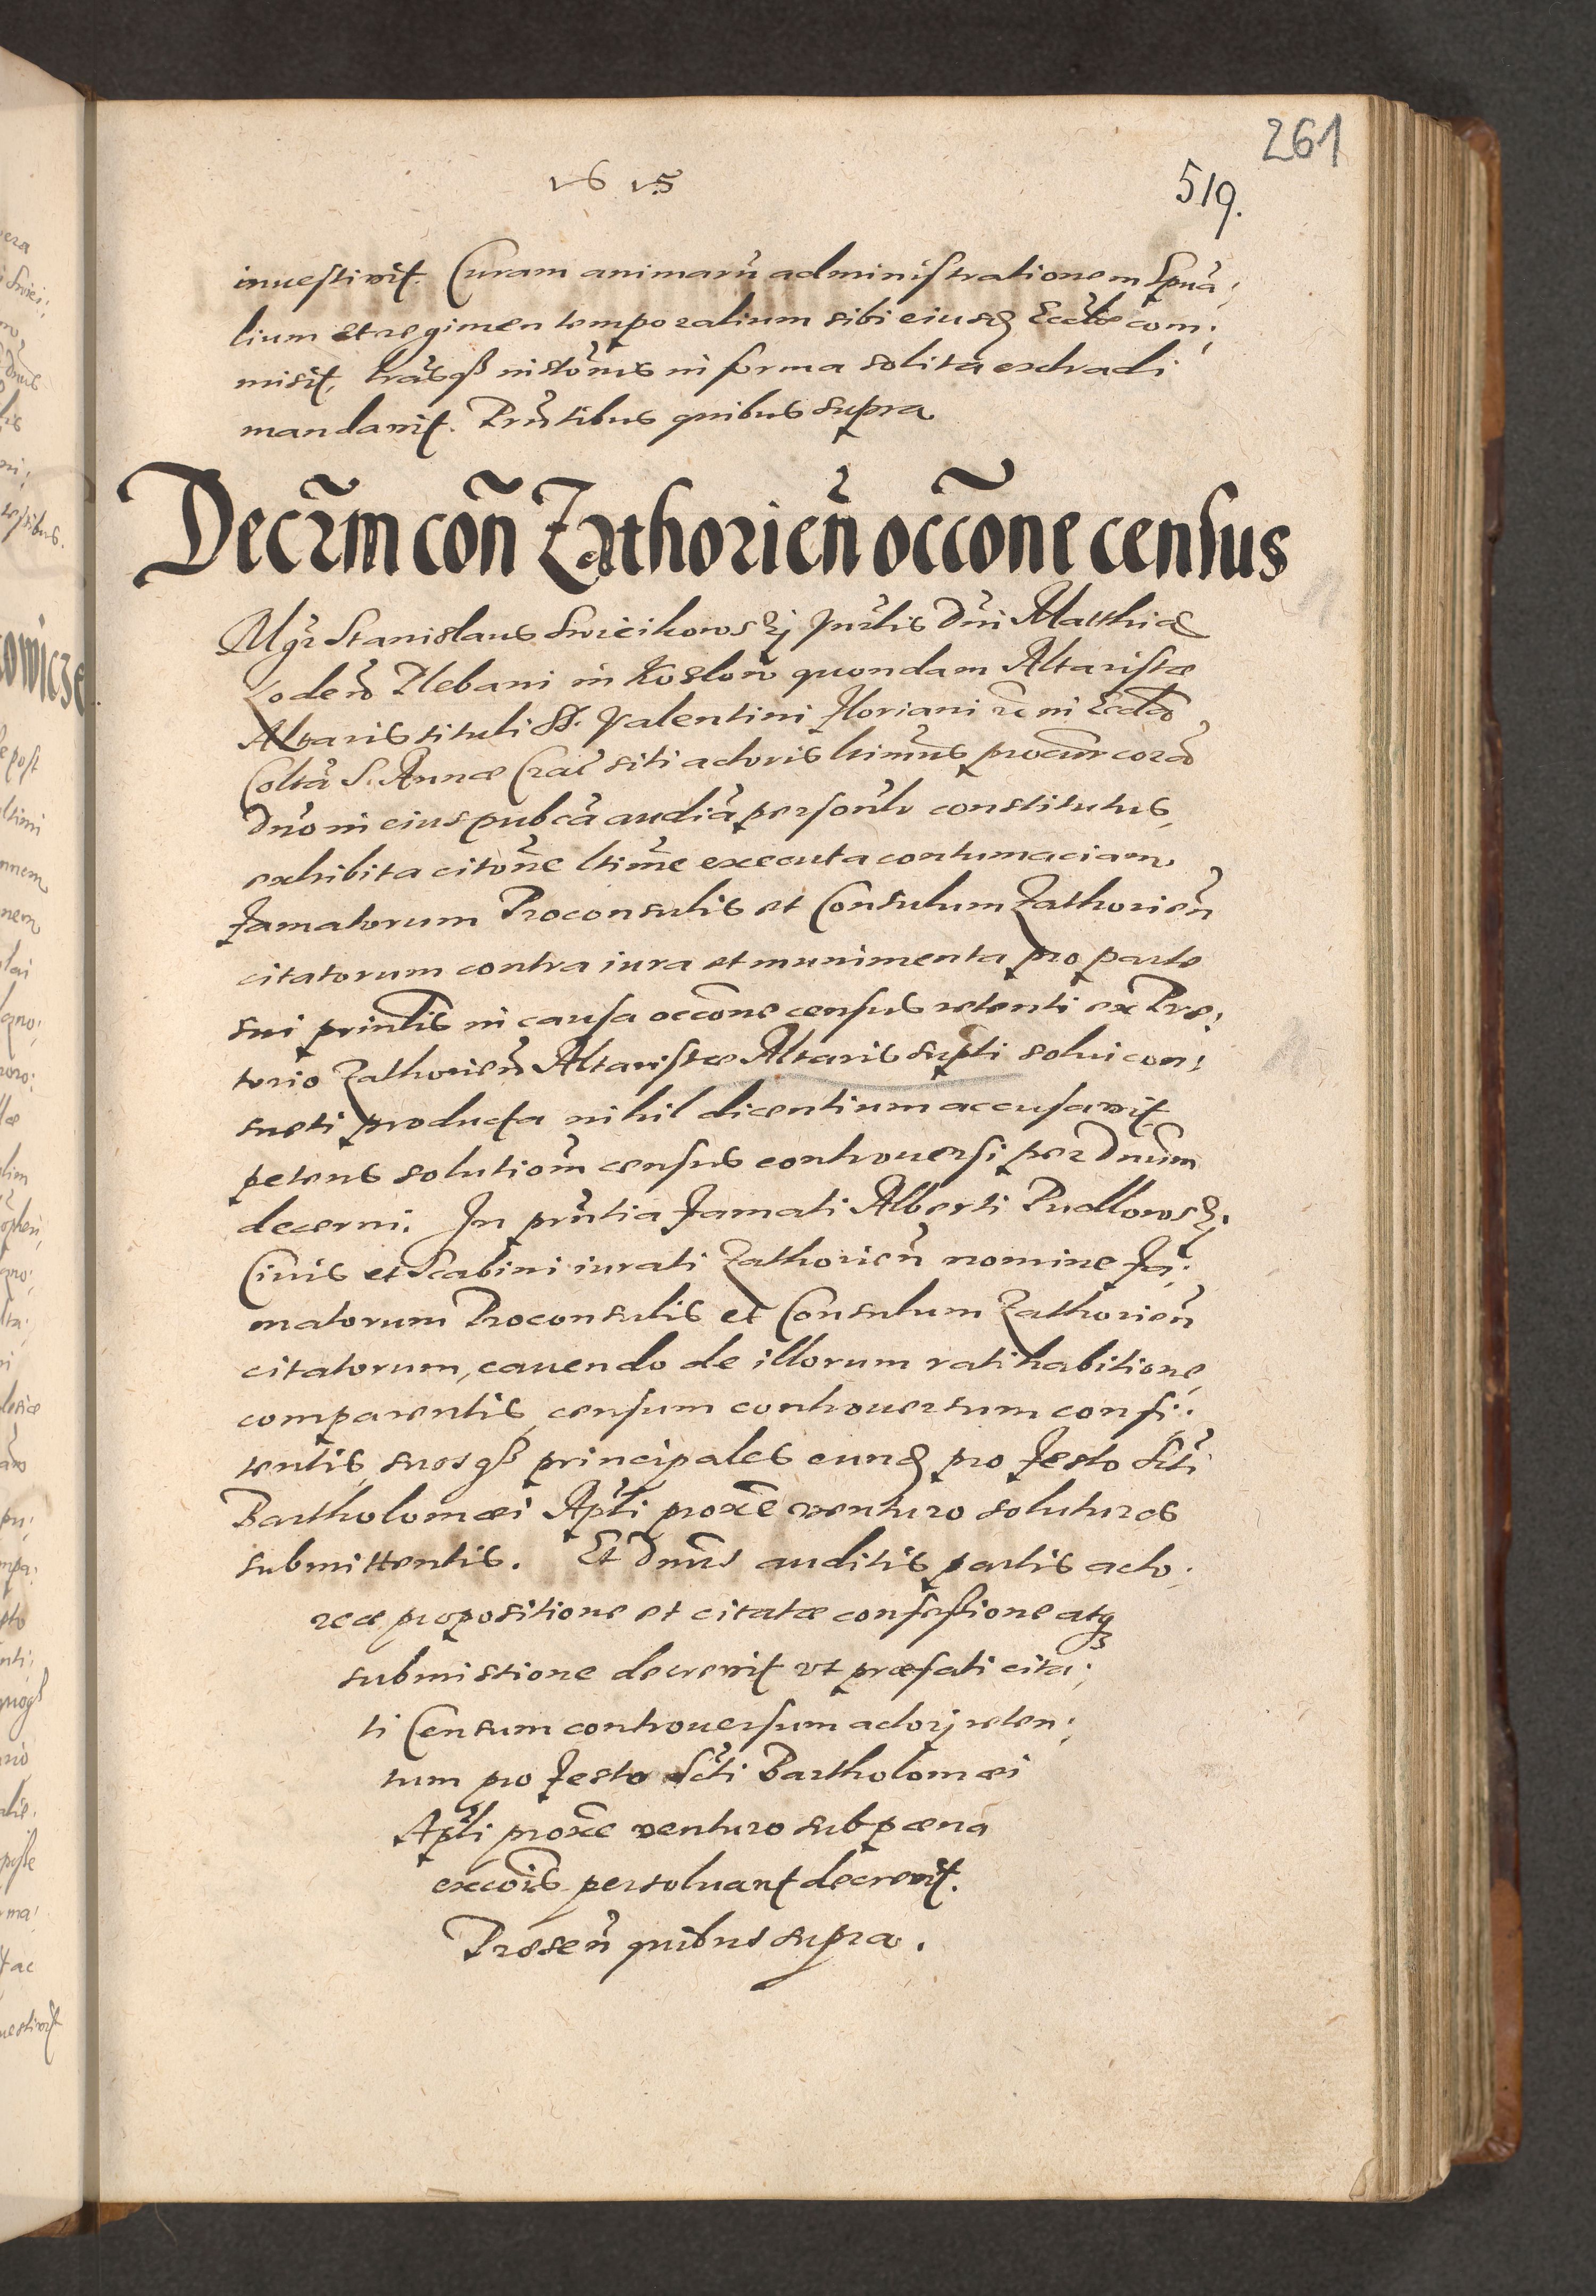 261
1615
519.
inuestivit. Curam animarũ administrationem Spuã:
lium et regimen temporalium sibi eiusd Ecclæ com:
misit, lrasq instõnis in forma solita extradi
mandavit. Prñtibus quibus supra
Decrm con Zathorien occone census
Mgr Stanislaus Swieikowskj Pntis Dni Matthiæ
Plebani in Koslow quondam Altaristæ
Altaris tituli SS. Valentini Floriani in Eccla
Colta S. Annæ Crac siti actoris ltimus procur cora
Dno in eius pubca audia personlr constitutus,
exhibita citone ltime executa contumaciam
Famatorum Proconsulis et Consulum Zathorien
citatorum contra iura et munimenta pro parte
sui prinlis in causa occone census retenti ex Præ:
torio Zathorien Altaristæ Altaris supti solui con:
sueti producta nihil dicentium accusavit
petens solutiom census controuersi per Dnum
decerni. In prntia Famati Alberti Pudlowskj
Civis et Scabini iurati Zathorien nomine Fa:
matorum Proconsulis et Consulum Zathorien
citatorum, cauendo de illorum ratihabitione
comparentis censum controuersum confi:
tentis, suosq principales eund pro Festo Scti
Bartholomæi Apli proxe venturo soluturos
submittentis. Et Dnus auditis partis acto:
reæ propositione et citatæ confessione atq
submissione decrevit vt præfati cita:
ti Censum controuersum actorj reten:
tum pro Festo Scti Bartholomæi
Apli proxe venturo sub pæna
excois persoluant decrevit.
Presen quibus supra.